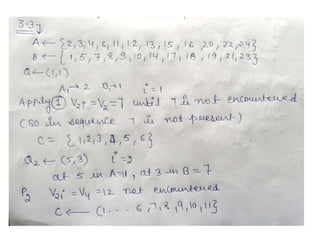 3-3y
A ← {2,3,4,6,11,12,13,15,16,20,22,24}
B ← {1,5,7,8,9,10,14,17,18,19,21,23}
Q ← (1,1)
A₁ → 2 B₁ → 1 i = 1
Apply ① V₂ᵢ = V₂ = 7 until 7 is not encountered
(SO in sequence 7 is not present)
C = {1,2,3,4,5,6}
Q₂ ← (5,3) i = 2
at 5 in A = 11, at 3 in B = 7
P₂ V₂ᵢ = V₄ = 12 not encountered
C ← (1 - - - 6, 7, 8, 9, 10, 11}